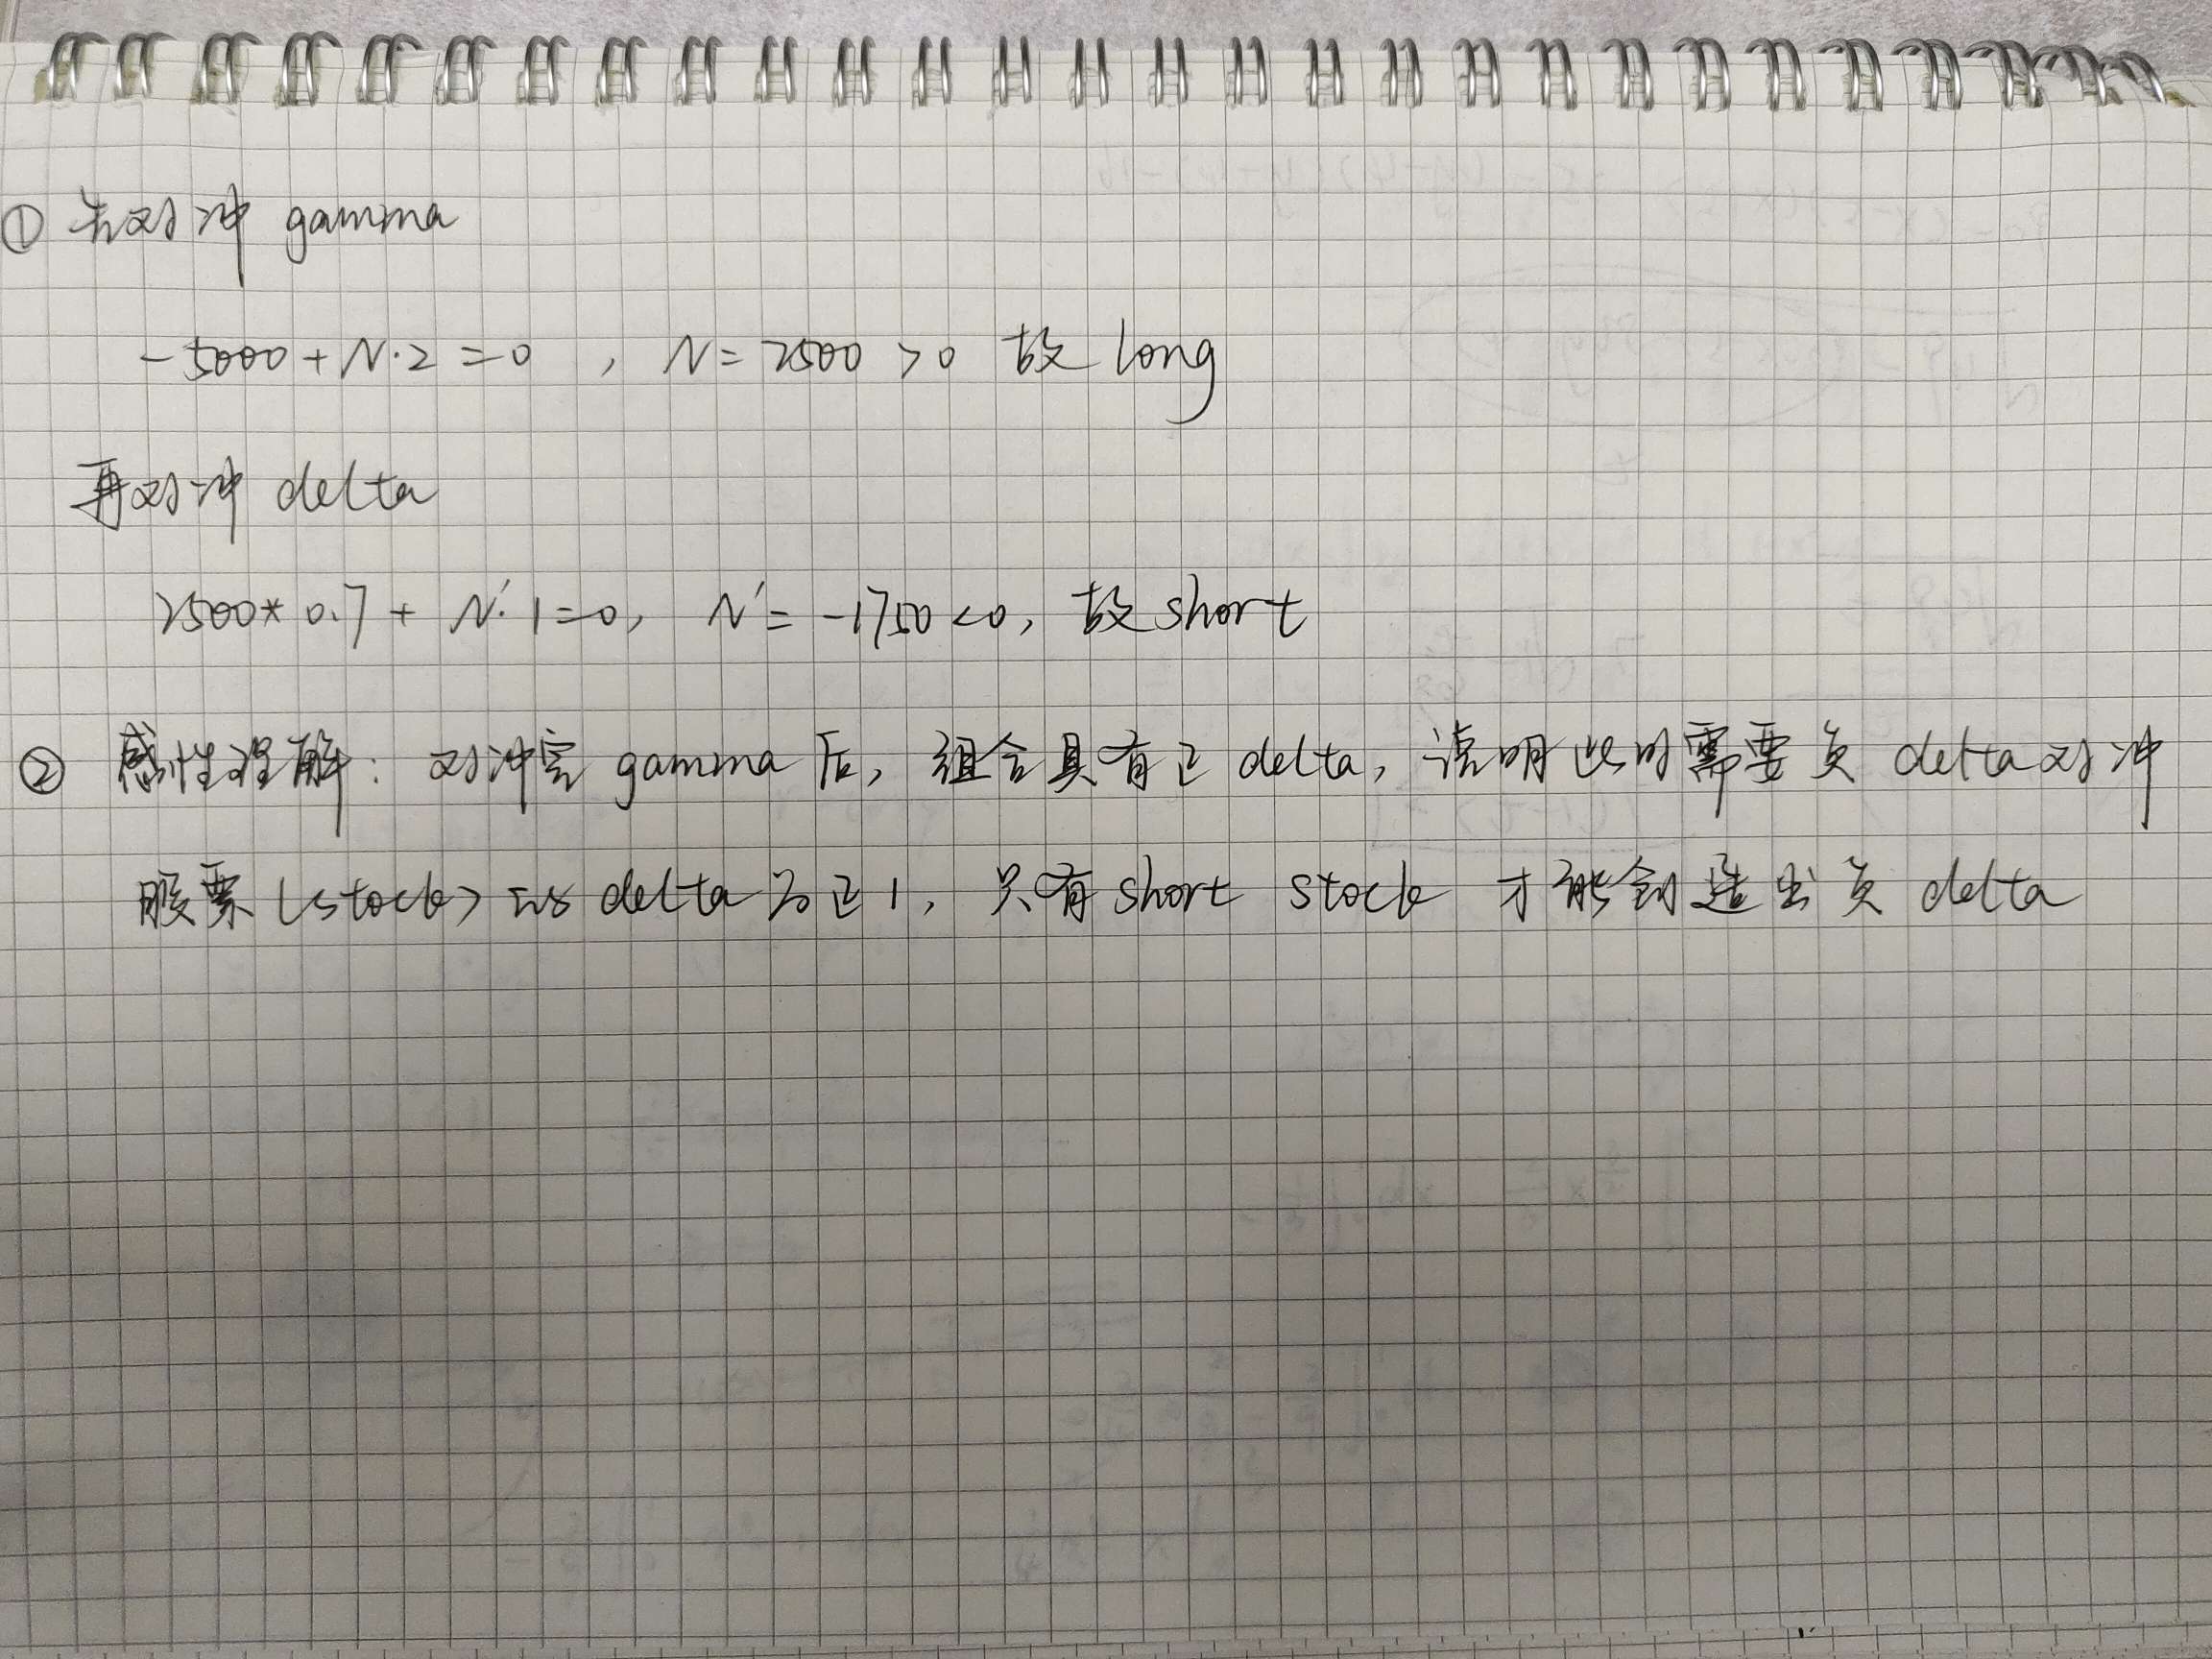 ① 先对冲 gamma
-5000 + N·2 = 0 , N = 2500 > 0 故 long
再对冲 delta
2500* 0.7 + N'·1 = 0, N' = -1750 < 0, 故 short
② 感性理解: 对冲完 gamma 后, 组合具有正 delta, 说明此时需要负 delta 对冲
股票 (stock) 的 delta 为正 1, 只有 short stock 才能创造出负 delta